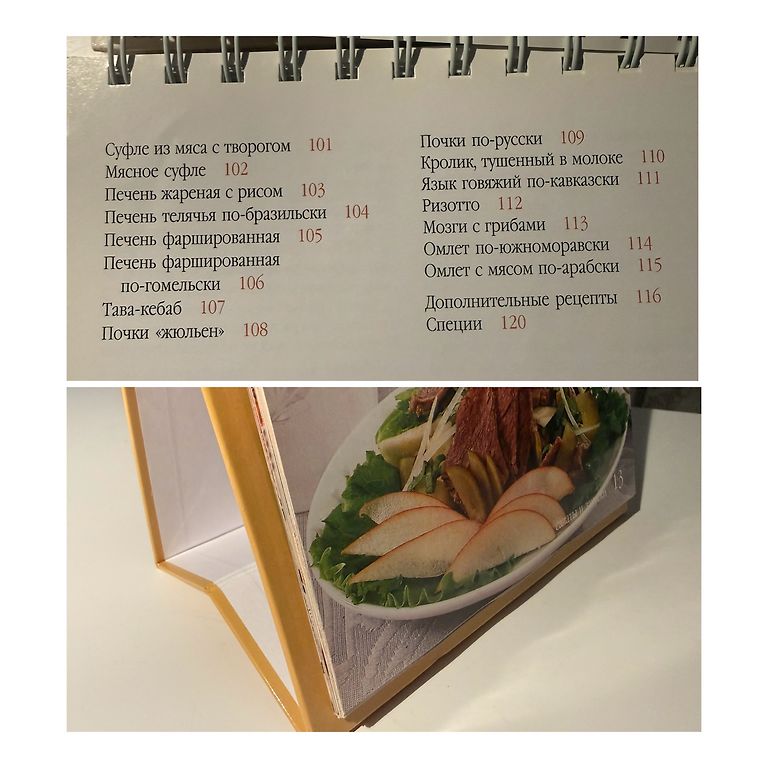 Суфле из мяса с творогом 101
Мясное суфле 102
Печень жареная с рисом 103
Печень телячья по-бразильски 104
Печень фаршированная 105
Печень фаршированная
по-гомельски 106
Тава-кебаб 107
Почки «жюльен» 108
Почки по-русски 109
Кролик, тушенный в молоке 110
Язык говяжий по-кавказски 111
Ризотто 112
Мозги с грибами 113
Омлет по-южноморавски 114
Омлет с мясом по-арабски 115
Дополнительные рецепты 116
Специи 120
13